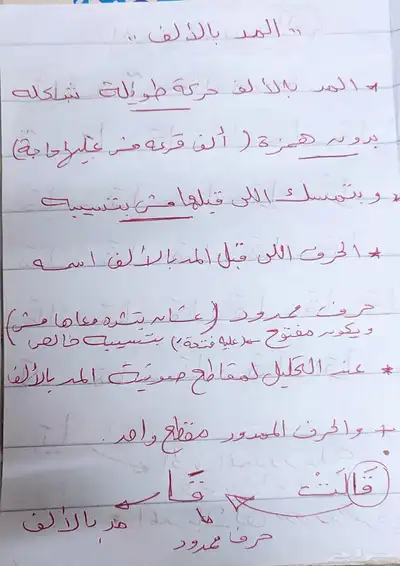 "المد بالألف"
* المد بالألف حركة طويلة شكله
بدون همزة (ألف قرعه مش عليها حاجة)
* وبتمسك اللي قبلها مش بتسيبه
* الحرف اللي قبل المد بالألف اسمه
حرف ممدود (عشان بتشده معاها مش)
ويكون مفتوح (عليه فتحة َ) بتسيبه خالص
* عند التحليل لمقاطع صوتية المد بالألف
+ والحرف الممدود مقطع واحد.
قَالَتْ قَا مد بالألف
حرف ممدود